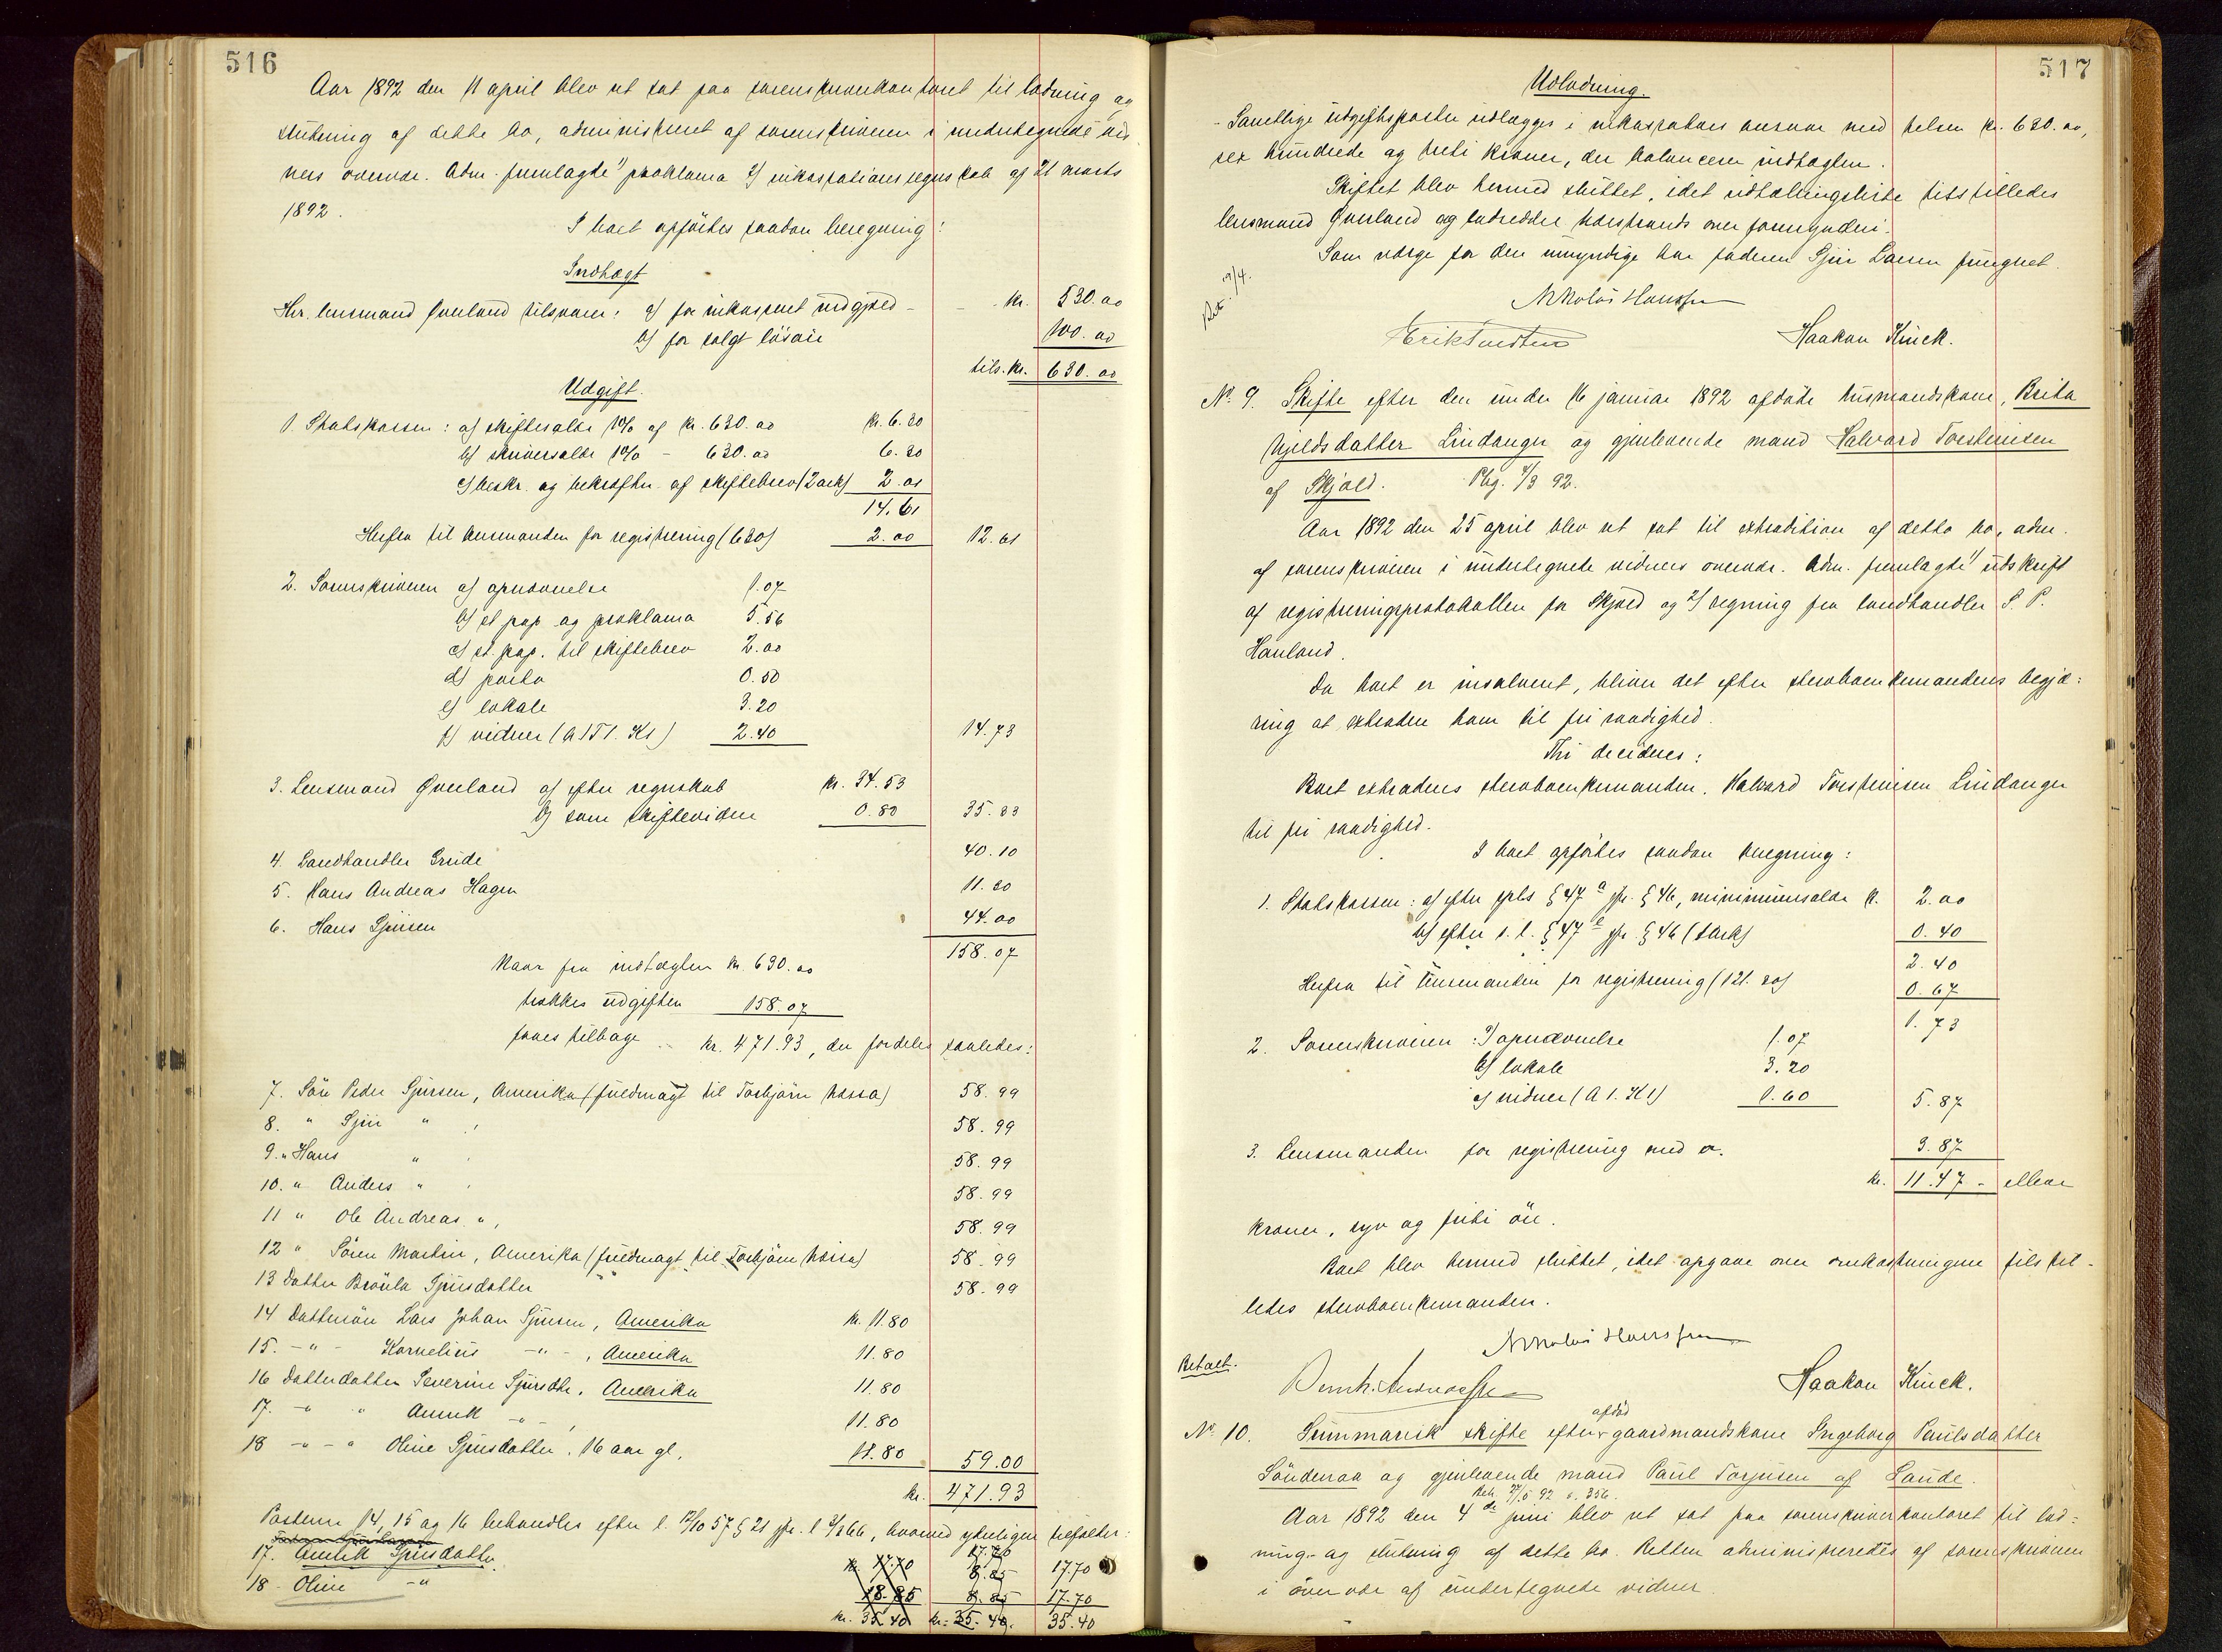 516
Aar 1892 den 11 april blev ret sat paa sorenskriverkontoret til lodning og
slutning af dette bo, administreret af sorenskriveren i undertegnede vid
ners overvær. Adm. fremlagde 1) proklama 2) inkassationsregnskab af 21 marts
1892.
I boet opførtes saadan beregning:
Indtægt
Hr. lensmand Qvarland tilsvarer: a) for inkasseret indgjæld - kr. 530.00
b) for solgt løsøre 100.00
tils. kr. 630.00
Udgift.
1. Statskassen: a) skiftesalær 1% af kr. 630.00 kr. 6.30
b) skriversalær 1% - 630.00 6.30
c) beskr. og bekræftn. af skiftebrev (2 ark) 2.01
14.61
Herfra til lensmanden for registrering (630) 2.00 12.61
2. Sorenskriveren a) opnævnelse 1.07
b) st. pap og proklama 5.56
c) st. pap. til skiftebrev 2.00
d) porto 0.50
e) lokale 3.20
f) vidner (A 1 T 1. K 1) 2.40 14.73
3. Lensmand Qvarland a) efter regnskab kr. 34.53
b) som skiftevidne 0.80 35.33
4. Landhandler Grude 40.10
5. Hans Andreas Hagen 11.30
6. Hans Sjursen 44.00
158.07
Naar fra indtægten kr. 630.00
trækkes udgiften 158.07
faaes tilbage - kr. 471.93, der fordeles saaledes:
7. Søn Peder Sjursen, Amerika (fuldmagt til Torbjørn Væssa) 58.99
8. " Sjur " , 58.99
9. " Hans " , 58.99
10. " Anders " , 58.99
11 " Ole Andreas ", 58.99
12 " Søren Martin, Amerika (fuldmagt til Torbjørn Væssa) 58.99
13 Datter Brøula Sjursdatter 58.99
14 Dattersøn Lars Johan Sjursen, Amerika kr. 11.80
15. - " - Kornelius - " - , Amerika 11.80
16 Datterdatter Severine Sjursdtr. Amerika 11.80
17. - " " Annik - " - , 11.80
18 - " - " Oline Sjursdatter, 16 aar gl. 11.80 59.00
kr. 471.93
Posterne 14, 15 og 16 behandles efter l. 12/10 57 § 21 jfr. l 3/3 66, hvorved yderligere tilfalder:
17. Annik Sjursdatter kr. 17.70 17.70 8.85 17.70
18 - Oline - " 18.85 8.85 17.70
kr. 35.40 kr. 35.40. 35.40
517
Udlodning.
- Samtlige udgiftsposter udlægges i inkassators ansvar med tilsm kr. 630.00,
sex hundrede og treti kroner, der balancerer indtægten.
Skiftet blev hermed sluttet, idet udtællingsliste tilstilledes
lensmand Qvarland og lodseddel Udestrands overformynderi.
Som værge for den umyndige har faderen Sjur Larsen fungeret.
Nikolai Hanssen
Erik Tvedten Haakon Kinck.
No. 9. Skifte efter den under 16 januar 1892 afdøde husmandskone, Brita
Kjeldsdatter Lindanger og gjenlevende mand Halvard Torstensen
af Skjold. Phg. 4/3 92.
Aar 1892 den 25 april blev ret sat til extradition af dette bo, adm.
af sorenskriveren i undertegnede vidners overvær. Adm. fremlagde 1) udskrift
af registreringsprotokollen for Skjold og 2) regning fra landhandler S. P.
Hauland.
Da boet er insolvent, bliver det efter stervboenkemandens begjæ:
ring at extradere ham til fri raadighed.
Thi decideres:
Boet extraderes stervboenkemanden, Halvard Torstensen Lindanger
til fri raadighed.
I boet opførtes saadan beregning:
1. Statskassen: a) efter sptls § 47 a jfr. § 46, minimumsalær kr. 2.00
b) efter s. l. § 47 e jfr. § 46 (1 ark) 0.40
2.40
Herfra til lensmanden for registrering (121.20) 0.67
1.73
2. Sorenskriveren: a) opnævnelse 1.07
b) lokale 3.20
c) vidner (A 1. K 1) 1.60 5.87
3. Lensmanden for registrering med v. 3.87
kr. 11.47 - elleve
kroner, syv og firti øre.
Boet blev hermed sluttet, idet opgave over omkostningerne tilstil-
ledes stervboenkemanden.
Nikolai Hanssen
Betalt.
Haakon Kinck.
No. 10. Summarisk skifte efter afdød gaardmandskone Ingeborg Paulsdatter
Sønderaa og gjenlevende mand Paul Torjusen af Saude.
Aar 1892 den 4 de juni blev ret sat paa sorenskriverkontoret til lod:
ning- og slutning af dette bo. Retten administreredes af sorenskriveren
i overvær af undertegnede vidner.